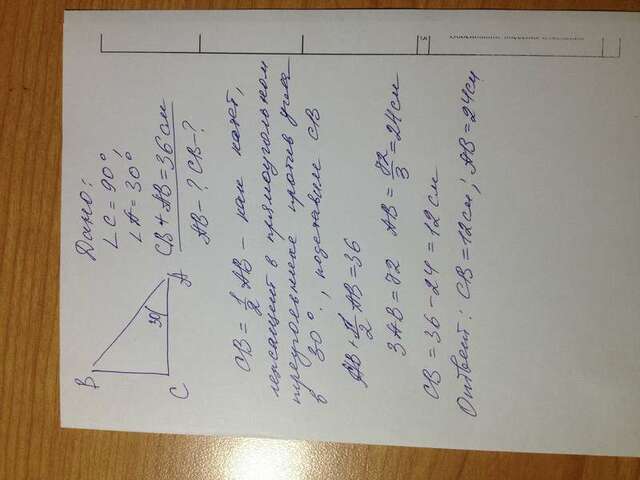 B
C
A
30
Дано:
∠C = 90°
∠A = 30°
CB + AB = 36 см
AB - ? CB - ?
CB = 1/2 AB - как катет,
лежащий в прямоугольном
треугольнике против угла
в 30°, подставим CB
AB + 1/2 AB = 36
3AB = 72 AB = 72/3 = 24 см
CB = 36 - 24 = 12 см
Ответ: CB = 12 см; AB = 24 см